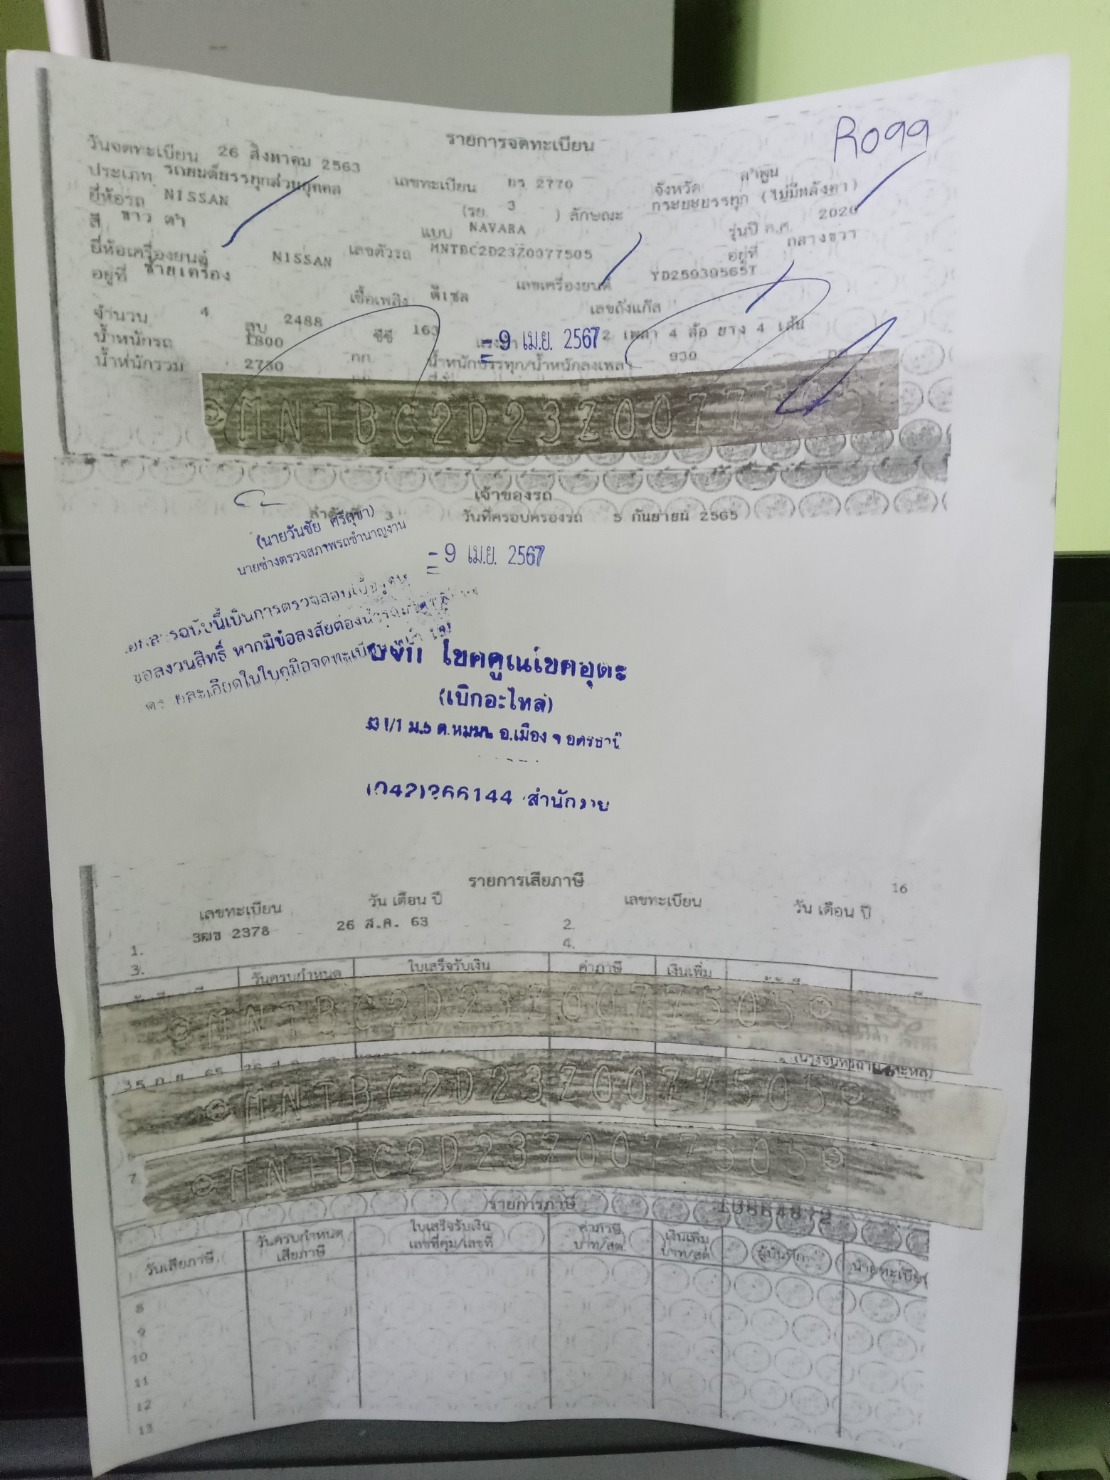 R099
รายการจดทะเบียน
วันจดทะเบียน 26 สิงหาคม 2563 เลขทะเบียน 2770 จังหวัด ลำพูน
ประเภท รถยนต์บรรทุกส่วนบุคคล (รย. 3 ) ลักษณะ กระบะบรรทุก (ไม่มีหลังคา)
ยี่ห้อรถ NISSAN แบบ NAVARA รุ่นปี ค.ศ. 2020
สี ขาว ดำ เลขตัวรถ MNTBC2D23Z0077505 อยู่ที่ กลางขวา
ยี่ห้อเครื่องยนต์ NISSAN เลขเครื่องยนต์ YD25930565T
อยู่ที่ ซ้ายเครื่อง เชื้อเพลิง ดีเซล เลขถังแก๊ส
จำนวน 4 สูบ 2488 ซีซี 163 2 เพลา 4 ล้อ ยาง 4 เส้น
= 9 เม.ย. 2567
น้ำหนักรถ 1800 กก. น้ำหนักบรรทุก/น้ำหนักลงเพลา 930
น้ำหนักรวม 2730
MNTBC2D23Z00775
เจ้าของรถ
ลำดับที่ 3 วันที่ครอบครองรถ 5 กันยายน 2565
(นายวันชัย ศรีสุขา)
นายช่างตรวจสภาพรถชำนาญงาน
= 9 เม.ย. 2567
เอกสารฉบับนี้เป็นการตรวจสอบเบื้องต้น
ขอสงวนสิทธิ์ หากมีข้อสงสัยต้อง
ละเอียดในใบคู่มือจดทะเบียน
บริษัท โชคคูณโชคอุดร
(เบิกอะไหล่)
1/1 ม.5 ต.หมูม่น อ.เมือง จ.อุดรธานี
(042)266144 สำนักงาน
16
รายการเสียภาษี
เลขทะเบียน วัน เดือน ปี เลขทะเบียน วัน เดือน ปี
1. 3ฒฆ 2378 26 ส.ค. 63 2.
3. 4.
วันครบกำหนด ใบเสร็จรับเงิน ค่าภาษี เงินเพิ่ม
MNTBC2D23Z0077505
MNTBC2D23Z0077505
7
MNTBC2D23Z0077505
รายการภาษี
วันเสียภาษี วันครบกำหนดเสียภาษี ใบเสร็จรับเงิน เลขที่คุม/เลขที่ ค่าภาษี บาท/สต. เงินเพิ่ม บาท/สต. ผู้บันทึก นายทะเบียน
8
9
10
11
12
13